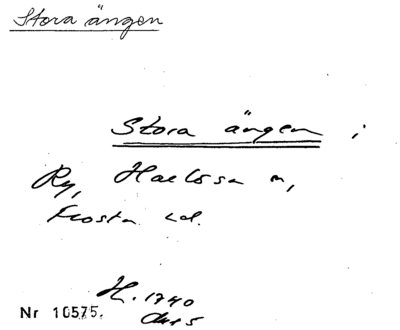 Stora ängen
Stora ängen ;
Ry, Hallösa n,
Frosta hd.
H. 1740
Nr 10575.